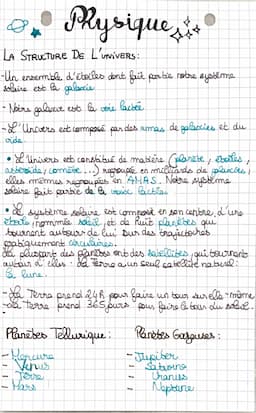 Physique
LA STRUCTURE DE L'UNIVERS:
-Un ensemble d'étoiles dont fait partie notre système
solaire est la galaxie
- Notre galaxie est la voie lactée.
- L'Univers est composé par des amas de galaxies et du
vide.
• L'Univers est constitué de matière (planète, étoiles,
astéroïde, comète...) regroupé en milliards de galaxies,
elles mêmes regroupées en AMAS. Notre système
solaire fait partie de la voie lactée
• Le système solaire est composé en son centre, d'une
étoile nommée soleil, et de huit planètes qui
tournent autour de lui sur des trajectoires
pratiquement circulaires.
La pluspart des planètes ont des satellites qui tournent
autour d'elles. La Terre a un seul satellite naturel:
la lune.
- La Terre prend 24h pour faire un tour sur elle-même
- La Terre prend 365 jours pour faire le tour du soleil.
Planètes Tellurique:
- Mercure
- Vénus
- Terre
- Mars
Planètes Gazeuses:
- Jupiter
- Saturne
- Uranus
- Neptune